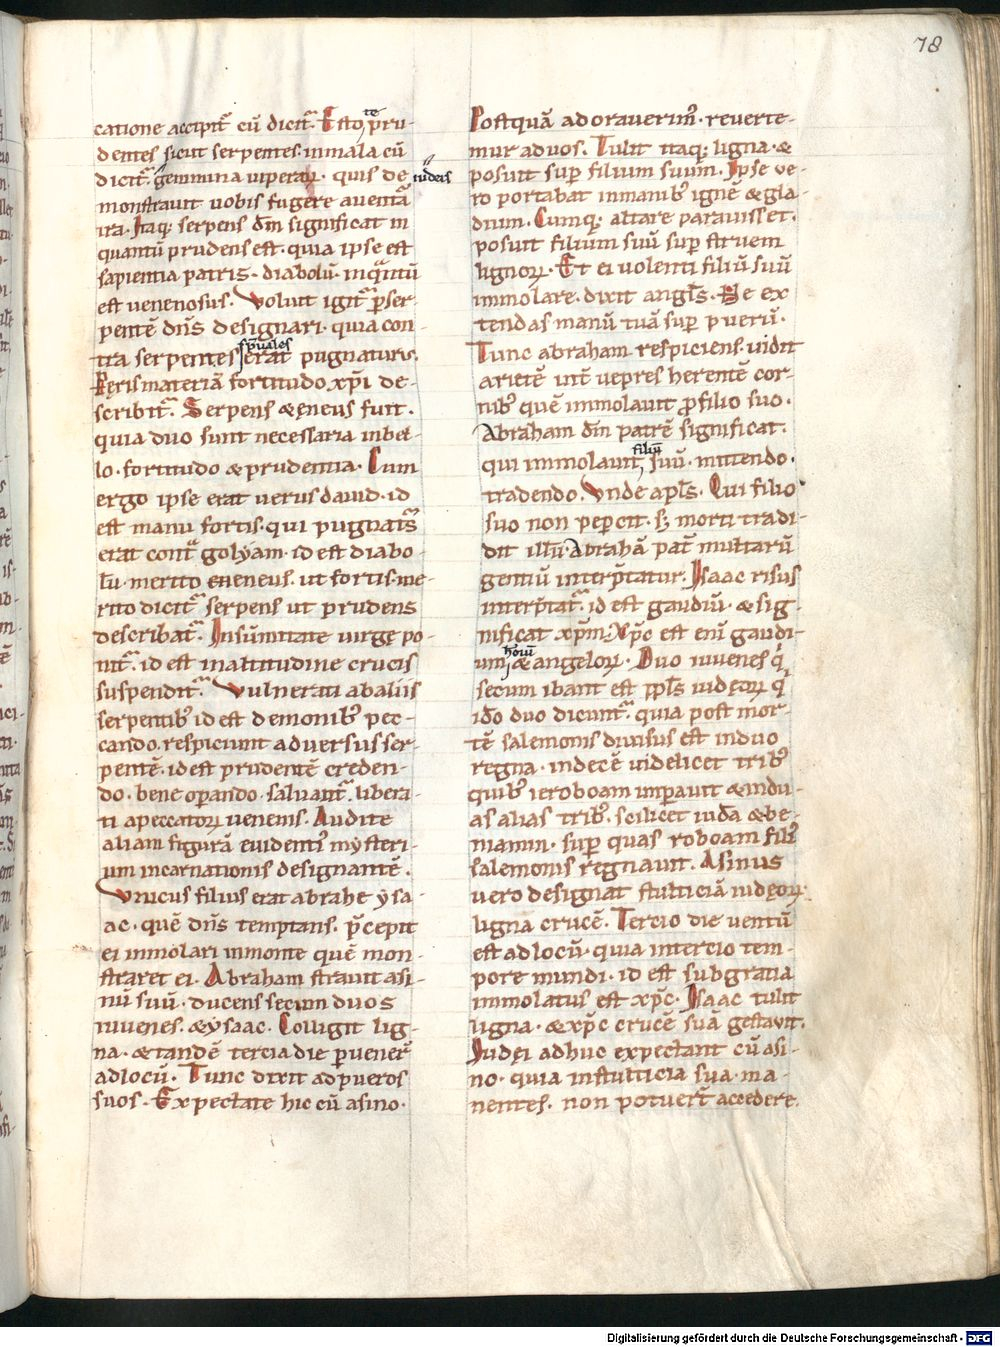 78
catione accipit᷑ cū dicit᷑. Estote pru-
dentes sicut serpentes. in mala cū
dicit᷑. gemmina uiperaꝝ. quis de iudeis
monstrauit uobis fugere a uentā
ira. Itaq; serpens dn̄m significat in
quantū prudens est. quia ipse est
sapientia patris. diabolū. inq̄ntū
est uenenosus. Voluit igit᷑ ꝑ ser-
pentē dn̄s designari. quia con-
tra serpentes spuales erat pugnaturus.
Ęris materiā fortitudo xp̄i de-
scribit᷑. Serpens & eneus fuit.
quia duo sunt necessaria in bel-
lo. fortitudo & prudentia. Cum
ergo ipse erat uerus dauid. id
est manu fortis. qui pugnat᷑s
erat cont᷑ golyam. id est diabo-
lū. merito eneneus. ut fortis. me-
rito dicit᷑ serpens ut prudens
describat᷑. In sūmitate uirgę po-
nit᷑. id est in altitudine crucis
suspendit᷑. Vulnerati ab aliis
serpentibꝰ id est demonibꝰ pec-
cando. respiciunt aduersus ser-
pentē. id est prudentē creden-
do. bene oꝑando. saluant᷑. libera-
ti a peccatoꝝ uenenis. Audite
aliam figurā euidentiꝰ mysteri-
um incarnationis designantē.
Vnicus filius erat abrahe ysa-
ac. quē dn̄s temptans. p̄cepit
ei inmolari in monte quē mon-
straret ei. Abraham strauit asi-
nū suū. ducens secum duos
iuuenes. & ysaac. Colligit lig-
na. & tandē tercia die ꝑuener᷑
ad locū. Tunc dixit ad pueros
suos. Expectate hic cū asino.
Postquā adorauerim᷑. reuerte-
mur ad uos. Tulit itaq; ligna. &
posuit suꝑ filium suum. Ipse ue-
ro portabat in manibꝰ ignē & gla-
dium. Cumq; altare parauisset.
posuit filium suū suꝑ struem
lignoꝝ. Et ei uolenti filiū suū
immolare. dixit angl̄s. Ne ex
tendas manū tuā suꝑ puerū.
Tunc abraham respiciens. uidit
arietē int᷑ uepres herentē cor-
nibꝰ quē immolauit ꝓ filio suo.
Abraham dn̄m patrē significat.
qui immolauit filiū suū. mittendo.
tradendo. Vnde apl̄s. Qui filio
suo non peꝑcit. s; morti tradi-
dit illū. Abrahā pat᷑ multarū
gentiū interp̄tatur. Isaac risus
interp̄tat᷑. id est gaudiū. & sig-
nificat xp̄m. Xp̄c est eni gaudi-
um hoīū & angeloꝝ. Duo iuuenes q̇
secum ibant est ppl̄s iudęoꝝ q̇
ido duo dicunt᷑. quia post mor-
tē salemonis diuisus est in duo
regna. in decē uidelicet tribꝰ
quibꝰ ieroboam imꝑauit & in du-
as alias tribꝰ. scilicet iuda & be-
niamin. suꝑ quas roboam filiꝰ
salemonis regnauit. Asinus
uero designat stulticiā iudęoꝝ.
ligna crucē. Tercio die uentū
est ad locū. quia in tercio tem-
pore mundi. id est sub gratia
immolatus est xp̄c. Isaac tulit
ligna. & xp̄c crucē suā gestauit.
Iudęi adhuc expectant cū asi-
no. quia in stulticia sua ma-
nentes. non potuer᷑t accedere.
Digitalisierung gefördert durch die Deutsche Forschungsgemeinschaft - DFG